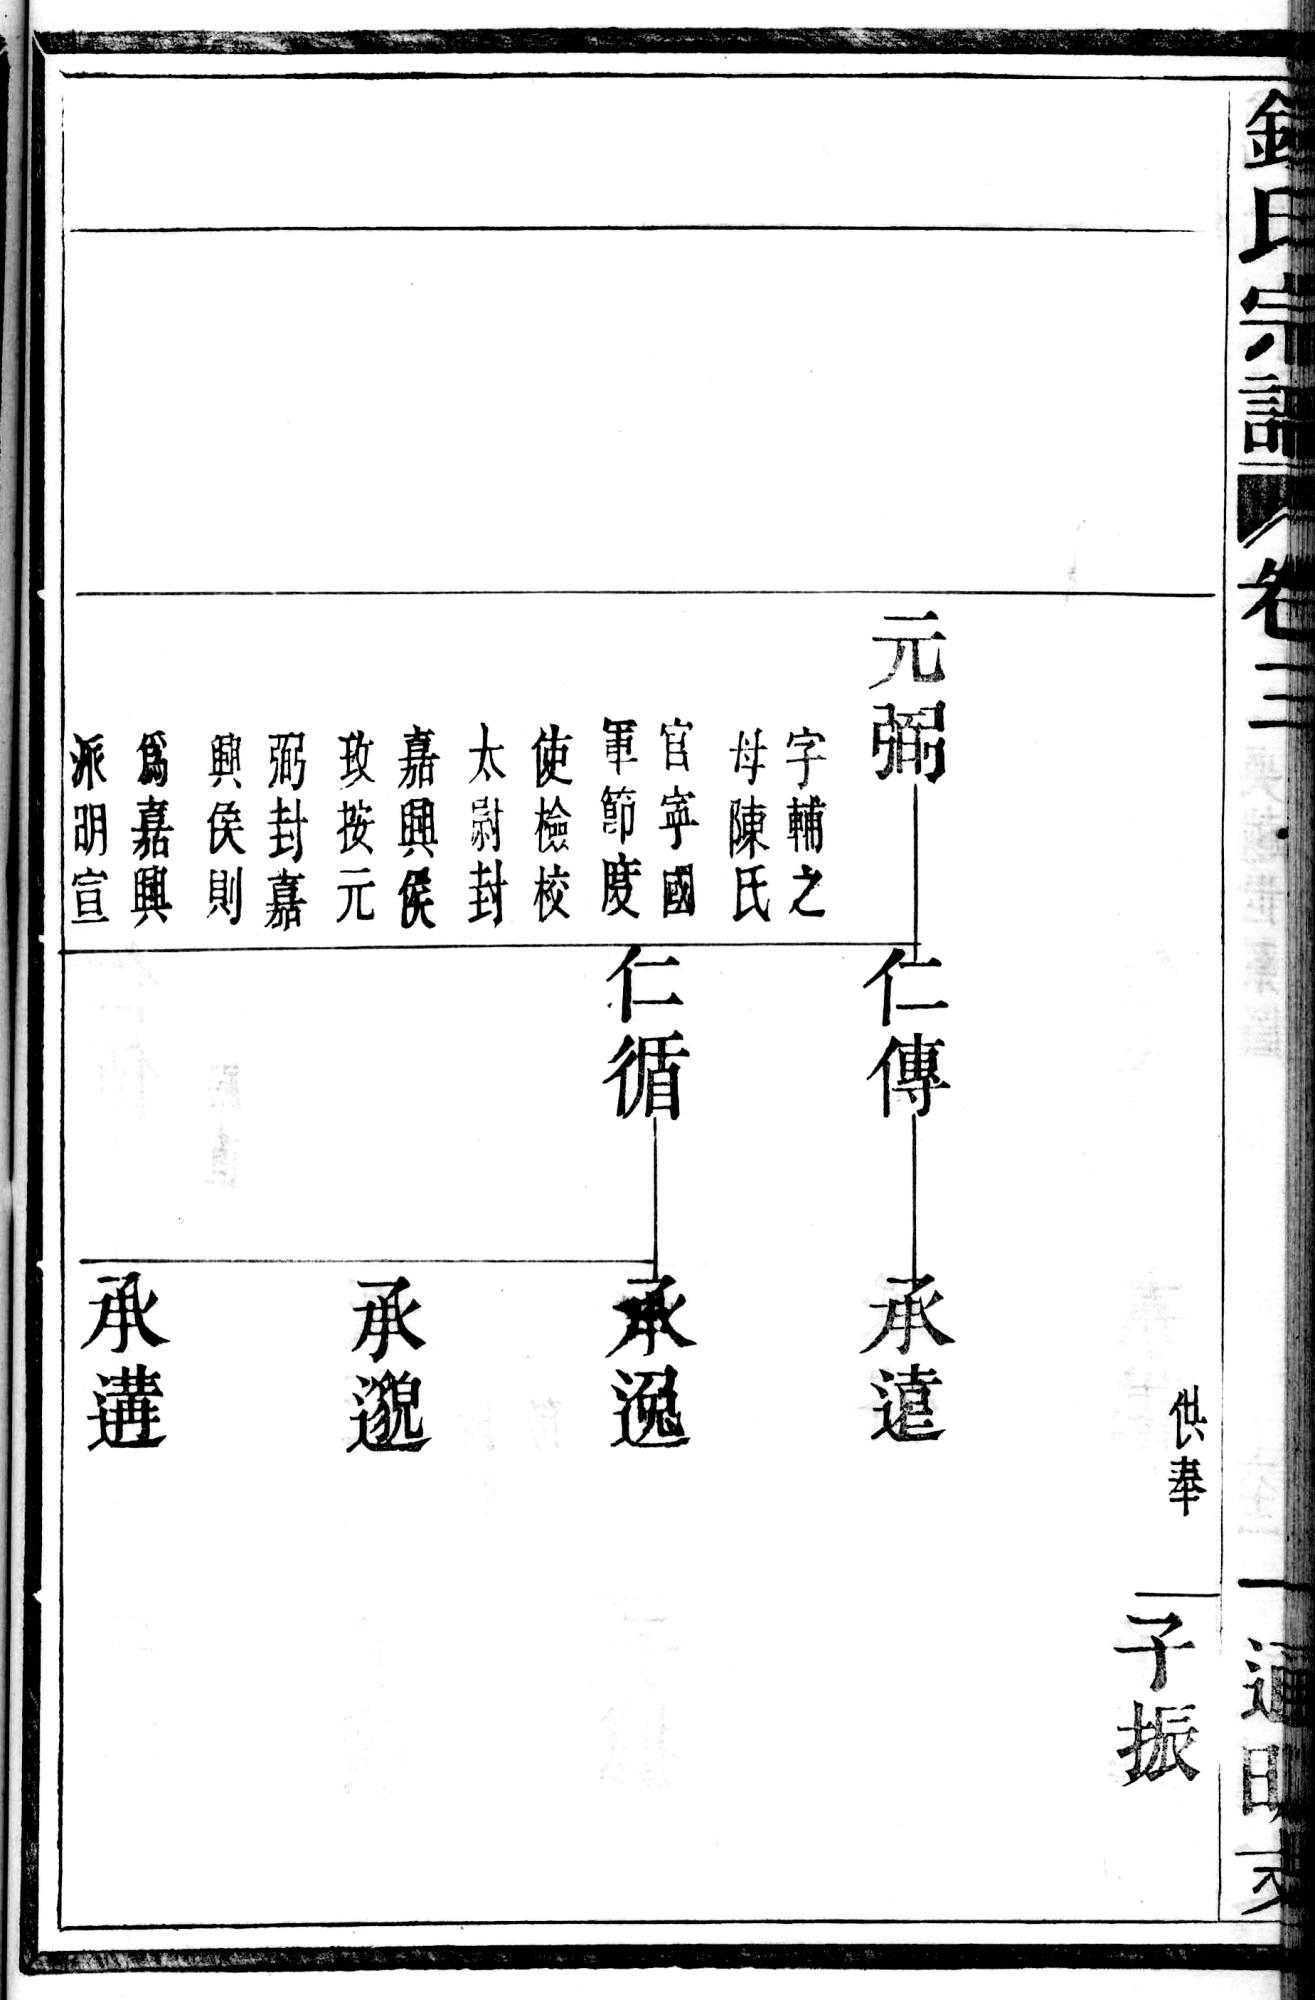 錢氏宗譜
卷三
一
通明支
供奉
子振
元弼
字輔之
母陳氏
官寧國
軍節度
使檢校
太尉封
嘉興侯
攷按元
弼封嘉
興侯則
爲嘉興
派明宣
仁傳
仁循
承遠
承逸
承邈
承遘